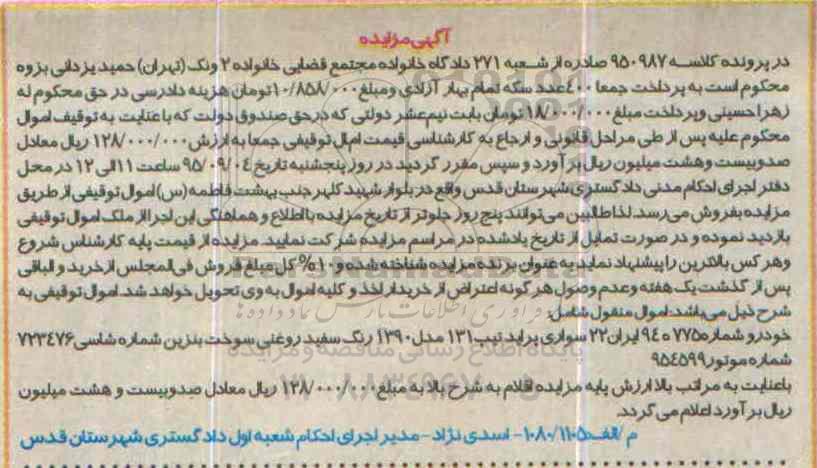 آگهی مزایده
در پرونده کلاسه ۹۵۰۹۸۷ صادره از شعبه ۲۷۱ دادگاه خانواده مجتمع قضایی خانواده ۲ ونک (تهران) حمید یزدانی بزوه
محکوم است به پرداخت جمعا ۴۰۰عدد سکه تمام بهار آزادی ومبلغ ۱۰/۸۵۸/۰۰۰تومان هزینه دادرسی در حق محکوم له
زهرا حسینی وپرداخت مبلغ ۱۸/۰۰۰/۰۰۰ تومان بابت نیم عشر دولتی که درحق صندوق دولت که با عنایت به توقیف اموال
محکوم علیه پس از طی مراحل قانونی و ارجاع به کارشناسی قیمت امال توقیفی جمعا به ارزش ۱۲۸/۰۰۰/۰۰۰ ریال معادل
صدوبیست وهشت میلیون ریال بر آورد و سپس مقرر گردید در روز پنجشنبه تاریخ ۹۵/۰۹/۰۴ ساعت ۱۱الی ۱۲ در محل
دفتر اجرای احکام مدنی دادگستری شهرستان قدس واقع در بلوار شهید کلهر جنب بهشت فاطمه (س) اموال توقیفی از طریق
مزایده بفروش می رسد. لذا طالبین می توانند پنج روز جلوتر از تاریخ مزایده با اطلاع و هماهنگی این اجرا از ملک اموال توقیفی
بازدید نموده و در صورت تمایل از تاریخ یادشده در مراسم مزایده شرکت نمایید. مزایده از قیمت پایه کارشناس شروع
وهر کس بالاترین را پیشنهاد نماید به عنوان برنده مزایده شناخته شده و ۱۰% کل مبلغ فروش فی المجلس از خرید و الباقی
پس از گذشت یک هفته وعدم وصول هر گونه اعتراض از خریدار اخذ و کلیه اموال به وی تحویل خواهد شد. اموال توقیفی به
شرح ذیل می باشد: اموال منقول شامل:
خودرو شماره ۷۷۵ه۹۴ ایران۲۲ سواری پراید تیپ ۱۳۱ مدل ۱۳۹۰ رنگ سفید روغنی سوخت بنزین شماره شاسی ۷۲۳۴۷۶
شماره موتور ۹۵۴۵۹۹
با عنایت به مراتب بالا ارزش پایه مزایده اقلام به شرح بالا به مبلغ ۱۲۸/۰۰۰/۰۰۰ ریال معادل صدوبیست و هشت میلیون
ریال بر آورد اعلام می گردد.
م/الف۱۰۸۰/۱۱۰۵- اسدی نژاد- مدیر اجرای احکام شعبه اول دادگستری شهرستان قدس
پایگاه اطلاع رسانی مناقصه و مزایده